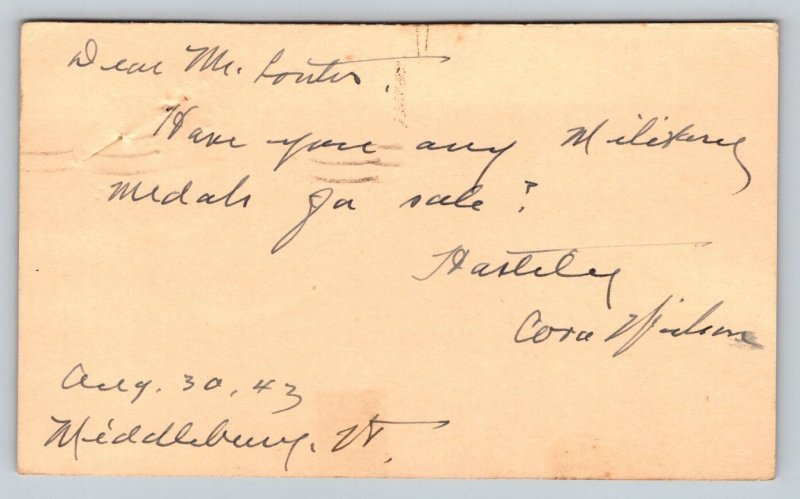 Dear Mr.
Have you any Military
medals for sale?
Hastily
Cora Wilson
Aug. 30, 43
Middlebury, Vt.